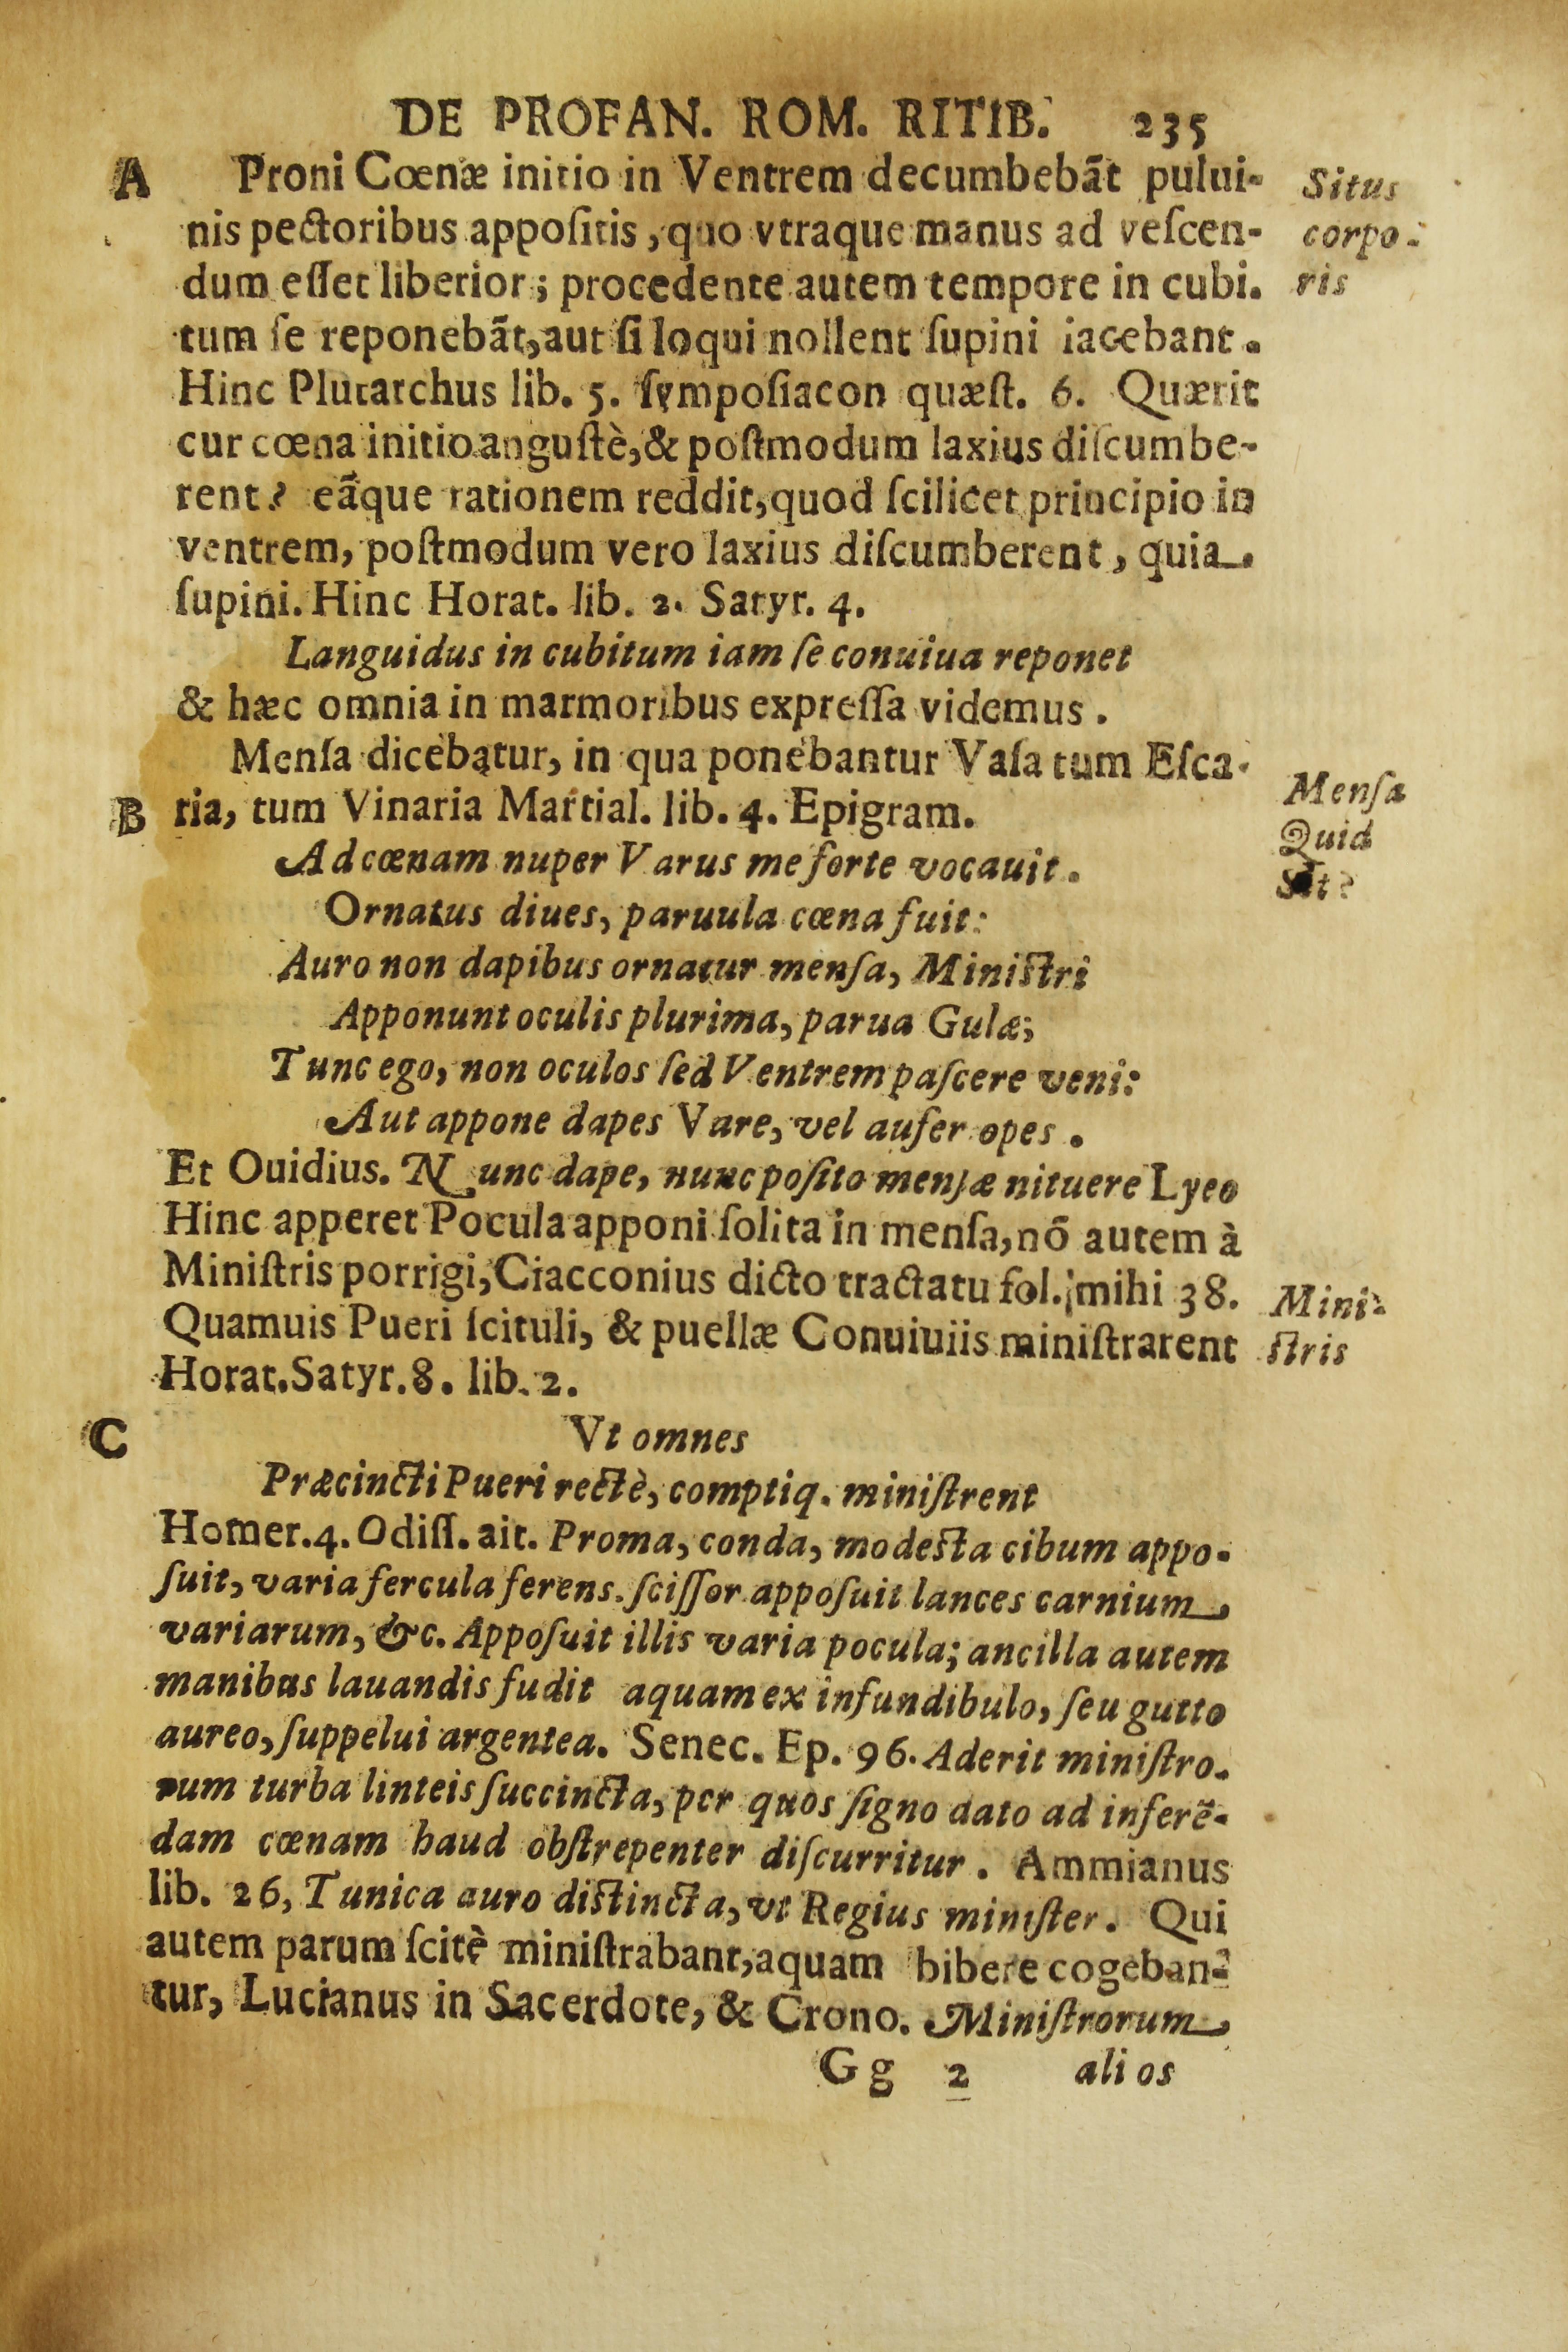 DE PROFAN. ROM. RITIB. 235
A Proni Cœnæ initio in Ventrem decumbebãt pului- Situs
nis pectoribus appoſitis, quo vtraque manus ad veſcen- corpo-
dum eſſet liberior; procedente autem tempore in cubi. ris
tum ſe reponebãt, aut ſi loqui nollent ſupini iacebant.
Hinc Plutarchus lib. 5. ſympoſiacon quæſt. 6. Quærit
cur cœna initio anguſtè, & poſtmodum laxius diſcumbe-
rent? eãque rationem reddit, quod ſcilicet principio in
ventrem, poſtmodum vero laxius diſcumberent, quia
ſupini. Hinc Horat. lib. 2. Satyr. 4.
Languidus in cubitum iam ſe conuiua reponet
& hæc omnia in marmoribus expreſſa videmus.
Menſa dicebatur, in qua ponebantur Vaſa tum Eſca- Menſa
B ria, tum Vinaria Martial. lib. 4. Epigram. Quid
Ad cœnam nuper Varus me forte vocauit. Sit?
Ornatus diues, paruula cœna fuit:
Auro non dapibus ornatur menſa, Miniſtri
Apponunt oculis plurima, parua Gulæ;
Tunc ego, non oculos ſed Ventrem paſcere veni:
Aut appone dapes Vare, vel aufer opes.
Et Ouidius. Nunc dape, nunc poſito menſæ nituere Lyeo
Hinc apperet Pocula apponi ſolita in menſa, nõ autem à
Miniſtris porrigi, Ciacconius dicto tractatu fol. mihi 38. Mini-
Quamuis Pueri ſcituli, & puellæ Conuiuiis miniſtrarent ſtris
Horat. Satyr. 8. lib. 2.
C Vt omnes
Præcincti Pueri rectè, comptiq. miniſtrent
Homer. 4. Odiſſ. ait. Proma, conda, modeſta cibum appo-
ſuit, varia fercula ferens. ſciſſor appoſuit lances carnium
variarum, &c. Appoſuit illis varia pocula; ancilla autem
manibus lauandis fudit aquam ex infundibulo, ſeu gutto
aureo, ſuppelui argentea. Senec. Ep. 96. Aderit miniſtro-
rum turba linteis ſuccincta, per quos ſigno dato ad inferẽ-
dam cœnam haud obſtrepenter diſcurritur. Ammianus
lib. 26, Tunica auro diſtincta, vt Regius miniſter. Qui
autem parum ſcitè miniſtrabant, aquam bibere cogeban-
tur, Lucianus in Sacerdote, & Crono. Miniſtrorum
Gg 2 alios